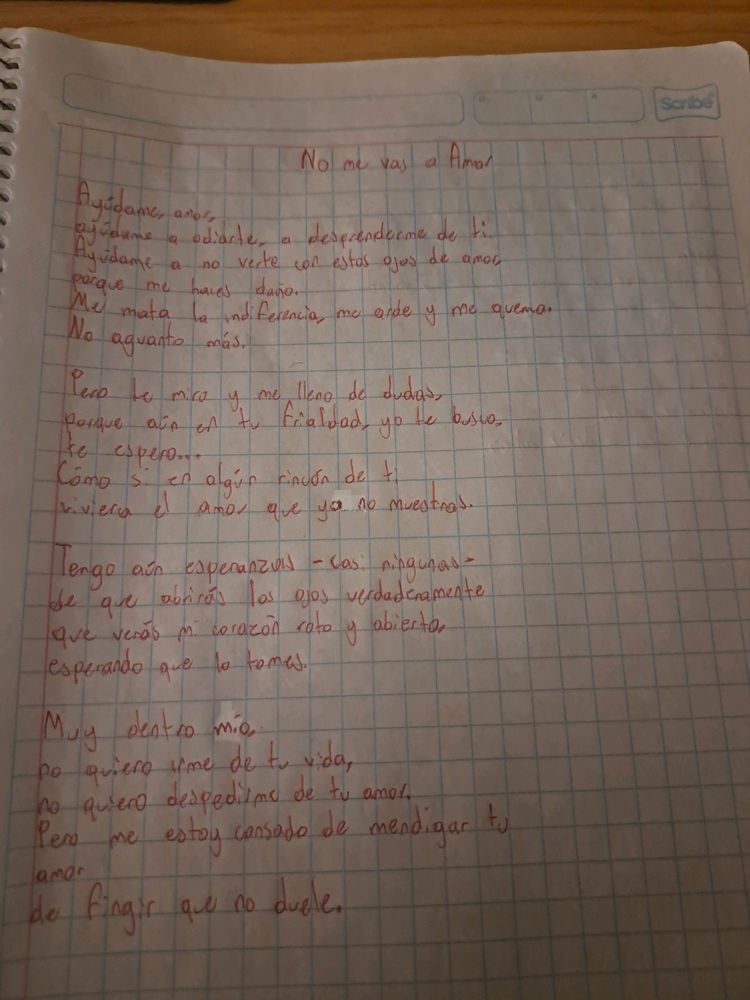 Scribe
D M A
No me vas a Amar
Ayúdame, amor,
ayúdame a odiarte, a desprenderme de ti.
Ayúdame a no verte con estos ojos de amor,
porque me haces daño.
Me mata la indiferencia, me arde y me quema.
No aguanto más.
Pero te miro y me lleno de dudas,
porque aún en tu frialdad, yo te busco,
te espero...
Cómo si en algún rincón de ti
viviera el amor que ya no muestras.
Tengo aún esperanzas - casi ningunas -
de que abrirás los ojos verdaderamente
que verás mi corazón roto y abierto,
esperando que lo tomes.
Muy dentro mío,
no quiero irme de tu vida,
no quiero despedirme de tu amor.
Pero me estoy cansado de mendigar tu
amor
de fingir que no duele.